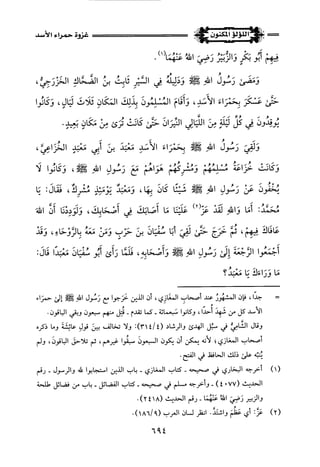 اللؤلؤ المكنون
غزوة حمراء الأسد
فِيهِمْ أَبُو بَكْرٍ وَالزُّبَيْرُ رَضِيَ اللهُ عَنْهُمَا(١).
وَمَضَىٰ رَسُولُ اللهِ ﷺ وَدَلِيلُهُ فِي السَّيْرِ ثَابِتُ بنُ الضَّحَّاكِ الخَزْرَجِيُّ،
حَتَّىٰ عَسْكَرَ بِحَمْرَاءِ الأَسَدِ، وَأَقَامَ المُسْلِمُونَ بِذَلِكَ المَكَانِ ثَلَاثَ لَيَالٍ، وَكَانُوا
يُوقِدُونَ فِي كُلِّ لَيْلَةٍ مِنَ اللَّيَالِي النِّيرَانَ حَتَّىٰ كَانَتْ تُرَىٰ مِنْ مَكَانٍ بَعِيدٍ.
وَلَقِيَ رَسُولَ اللهِ ﷺ بِحَمْرَاءِ الأَسَدِ مَعْبَدُ بنُ أَبِي مَعْبَدٍ الخُزَاعِيُّ،
وَكَانَتْ خُزَاعَةُ مُسْلِمُهُمْ وَمُشْرِكُهُمْ هَوَاهُمْ مَعَ رَسُولِ اللهِ ﷺ، وَكَانُوا لَا
يُخْفُونَ عَنْ رَسُولِ اللهِ ﷺ شَيْئًا كَانَ بِهَا، وَمَعْبَدٌ يَوْمَئِذٍ مُشْرِكٌ، فَقَالَ: يَا
مُحَمَّدُ: أَمَا وَاللهِ لَقَدْ عَزَّ(٢) عَلَيْنَا مَا أَصَابَكَ فِي أَصْحَابِكَ، وَلَوَدِدْنَا أَنَّ اللهَ
عَافَاكَ فِيهِمْ، ثُمَّ خَرَجَ حَتَّىٰ لَقِيَ أَبَا سُفْيَانَ بنَ حَرْبٍ وَمَنْ مَعَهُ بِالرَّوْحَاءِ، وَقَدْ
أَجْمَعُوا الرَّجْعَةَ إِلَىٰ رَسُولِ اللهِ ﷺ وَأَصْحَابِهِ، فَلَمَّا رَأَىٰ أَبُو سُفْيَانَ مَعْبَدًا قَالَ:
مَا وَرَاءَكَ يَا مَعْبَدُ؟
= جدًا، فإن المشهور عند أصحاب المغازي، أن الذين خرجوا مع رسُولِ الله ﷺ إلى حمراء
الأسد كل من شهد أحدًا، وكانوا سَبعمائة ـ كما تقدم ـ قُتِل منهم سبعون وبقي الباقون.
وقال الشَّامِيُّ في سبُلِ الهدىٰ والرشاد (٣١٤/٤): ولا تخالف بينَ قول عائشَة وما ذكره
أصحاب المغازي؛ لأنه يمكن أن يكون السبعونَ سبقُوا غيرهم، ثم تلاحق الباقون، ولم
يُنبِّه علىٰ ذلك الحافظ في الفتح.
(١) أخرجه البخاري في صحيحه ـ كتاب المغازي ـ باب الذين استجابوا لله والرسول ـ رقم
الحديث (٤٠٧٧) ـ وأخرجه مسلم في صحيحه ـ كتاب الفضائل ـ باب من فضائل طلحة
والزبير رَضِيَ اللهُ عَنْهُمَا ـ رقم الحديث (٢٤١٨).
(٢) عَزَّ: أي عَظُمَ واشتَدَّ. انظر لسان العرب (١٨٦/٩).
٦٩٤